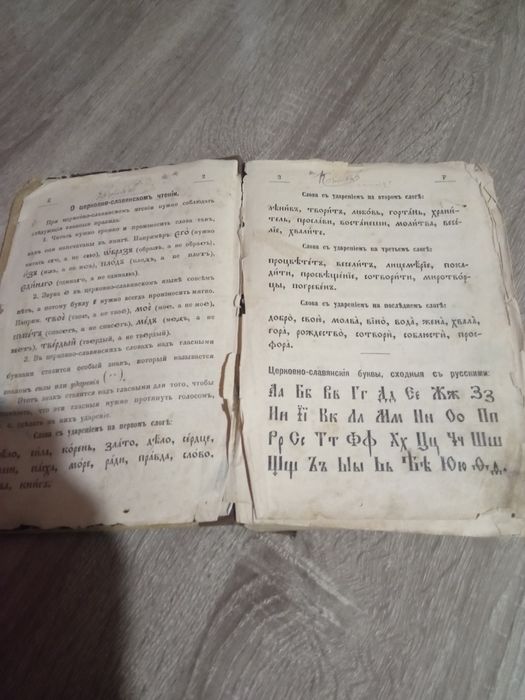 2
О церковно-славянском чтенiи.
При церковно-славянском чтенiи нужно соблюдать
следующiя главныя правила:
1. Читать нужно громко и произносить слова так,
как они напечатаны в книгѣ. Напримѣр: єгѡ̀ (но
его, а не ево), ѡ҆́браза (образа, а не
(как, а не пл плодъ (плод, а не плот),
є҆ди́наго (единаго, а не
2. Звука ё в церковно-славянском языкѣ совсѣм
нѣт, а потому букву е нужно всегда произносить мягко.
Наприм. твоѐ (твое, а не твоё), моѐ (мое, а не моё),
(а не ме́дъ (медъ, а не
тве́рдый (твердый, а не твёрдый).
2. В церковно-славянских словах над гласными
буквами ставится особый знак, который называется
силы или ударенiя
Этот знак ставится над гласными для того, чтобы
что эти гласныя нужно протянуть голосом,
сдѣлать на них ударенiе.
Слова съ ударенiем на первом слогѣ:
си́ла, ко́рень, зла́то, дѣ́ло, се́рдце,
па́сха, мо́ре, ра́ди, пра́вда, сло́во.
кни́га.
3
Слова съ ударенiем на втором слогѣ:
лѣни́въ, твори́тъ, любо́вь, горта́нь, храни́-
тель, просла́ви, воста́неши, моли́тва, весе́-
лїе, хвали́те.
Слова съ ударенiем на третьем слогѣ:
процвѣте́тъ, весели́тъ, лицемѣ́рїе, пока-
ди́ти, просвѣще́нїе, сотвори́ти, миротво́р-
цы, погребе́нъ.
Слова съ ударенiем на послѣднем слогѣ:
добро̀, свои̑, молва̀, вїно̀, вода̀, жена̀, хвала̀,
гора̀, рождество̀, сотворѝ, соблюстѝ, прос-
фора̀.
Церковно-славянскiя буквы, сходныя съ русскими:
Аа Бб Вв Гг Дд Єе Жж Зз
Ии Її Кк Лл Мм Нн Оо Пп
Рр Сс Тт Фф Хх Цц Чч Шш
Щщ Ъъ Ыы Ьь Ѣѣ Юю